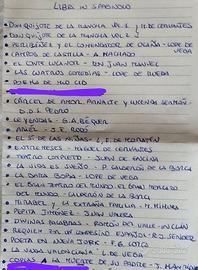 LIBRI IN SPAGNOLO
• DON QUIJOTE DE LA MANCHA VOL. 1, M. DE CERVANTES
• DON QUIJOTE DE LA MANCHA VOL. 2
• PERIBAÑEZ Y EL COMENDADOR DE OCAÑA - LOPE DE VEGA
• CAMPOS DE CASTILLA - A. MACHADO
• EL CONTE LUCANOR - DON JUAN MANUEL
• LAS CUATROS COMEDIAS - LOPE DE RUEDA
• POEMA DE MIO CID
• CARCEL DE AMOR, ARNALTE Y LUCENDA, SERMON - D. S. PEDRO
• LEYENDAS - G. A. BEQUER
• EL SÍ DE LAS NIÑAS - L. F. DE MORATÍN
• ENTREMESES - MIGUEL DE CERVANTES
• TEATRO COMPLETO - JUAN DE ENCINA
• LA VIDA ES SUEÑO - P. CALDERON DE LA BARCA
• LA DAMA BOBA - LOPE DE VEGA
• EL GRAN TEATRO DEL MUNDO. EL GRAN MERCADO DEL MUNDO - CALDERON DE LA BARCA
• MIRABEL Y LA EXTRAÑA FAMILIA - M. MIHURA
• PEPITA JIMENEZ - JUAN VALERA
• DIVINAS PALABRAS - RAMON DEL VALLE-INCLÁN
• REQUIEM POR UN CAMPESINO ESPAÑOL - R. J. SENDER
• POETA EN NUEVA YORK - F. G. LORCA
• LA VIUDA VALENCIANA - L. DE VEGA
• COPLAS A LA MUERTE DE SU PADRE - J. MANRIQUE